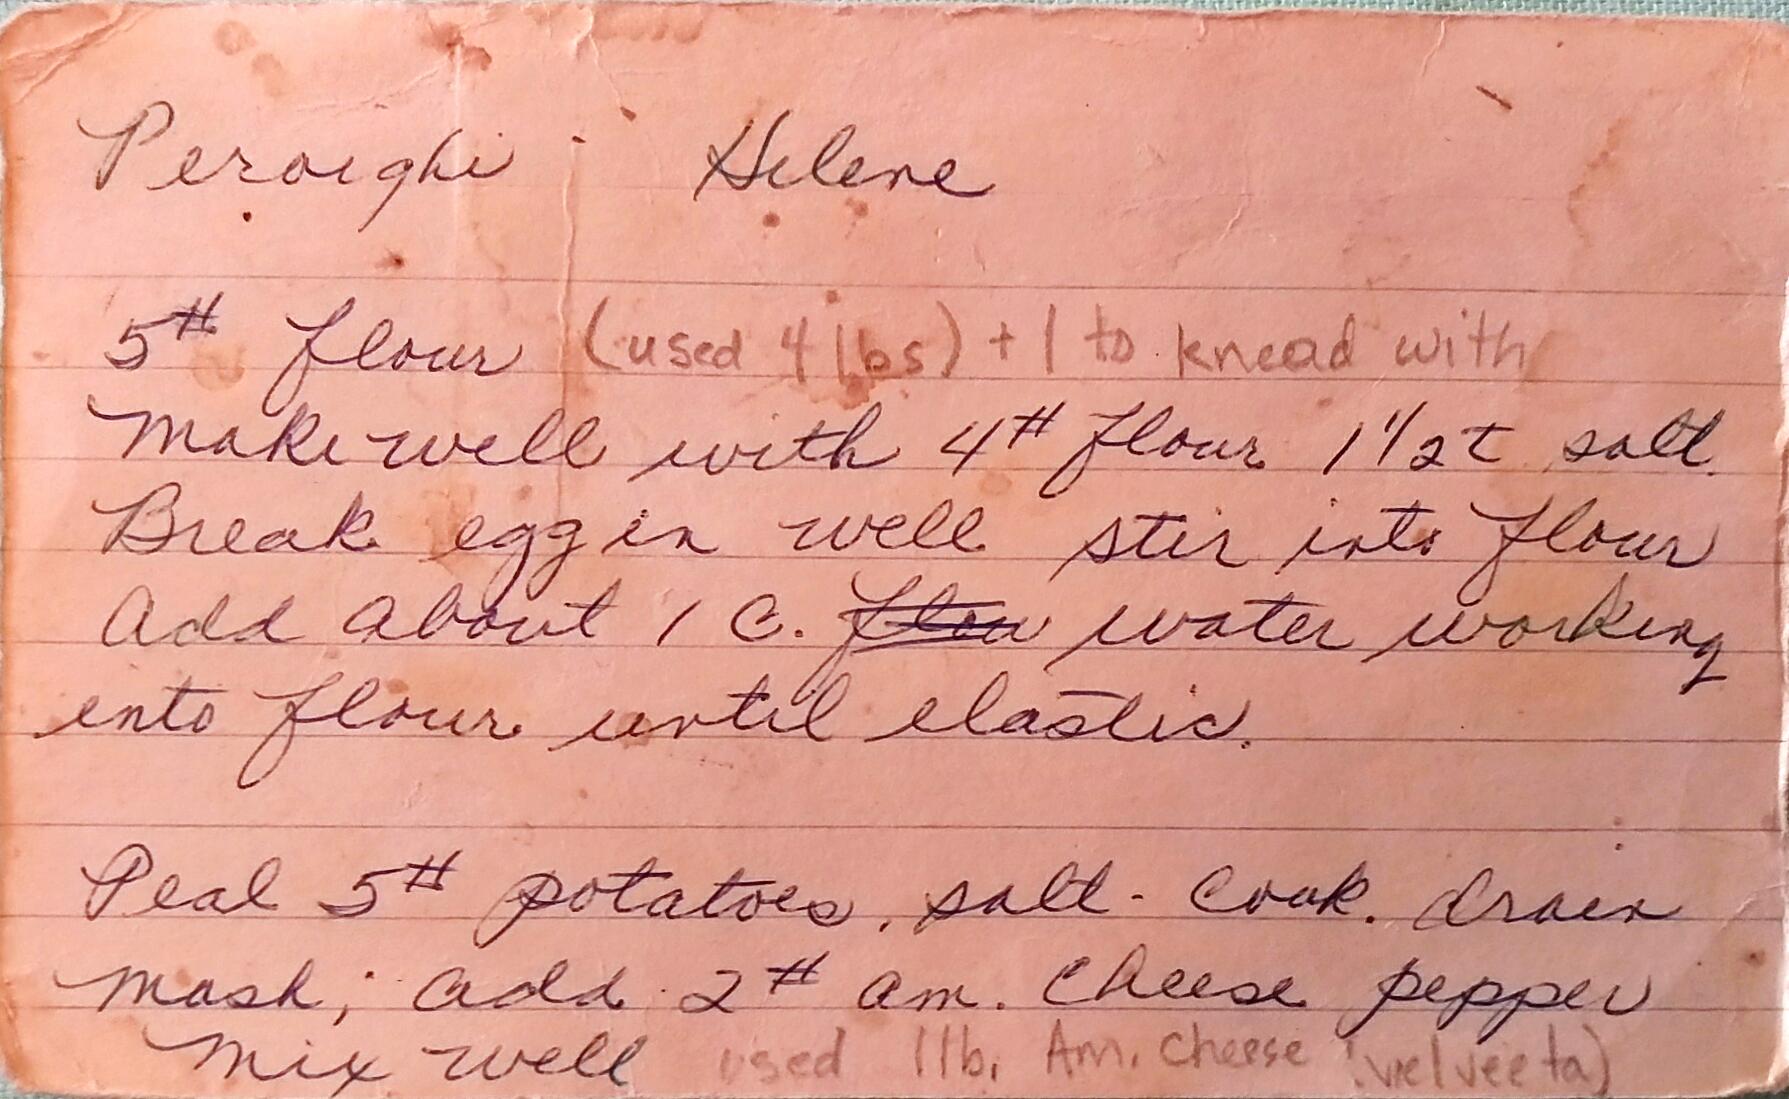 Peroighi Helene
5# flour (used 4 lbs) + 1 to knead with
Make well with 4# flour 1 1/2 t salt.
Break egg in well stir into flour
Add about 1 C. flou water working
into flour until elastic.
Peal 5# potatoes, salt - Cook. drain
mash; add 2# am. Cheese pepper
Mix well used 1 lb. Am. Cheese (velveeta)